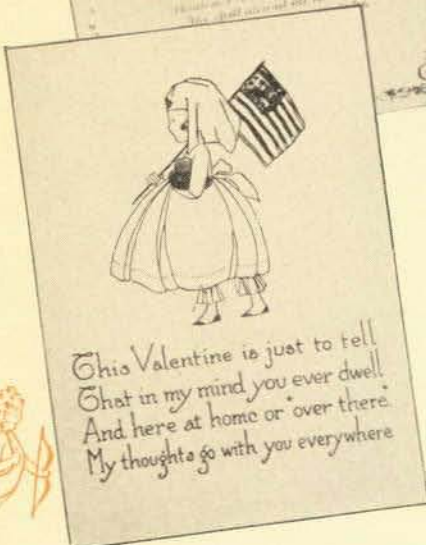 This Valentine is just to tell
That in my mind you ever dwell
And here at home or "over there"
My thoughts go with you everywhere